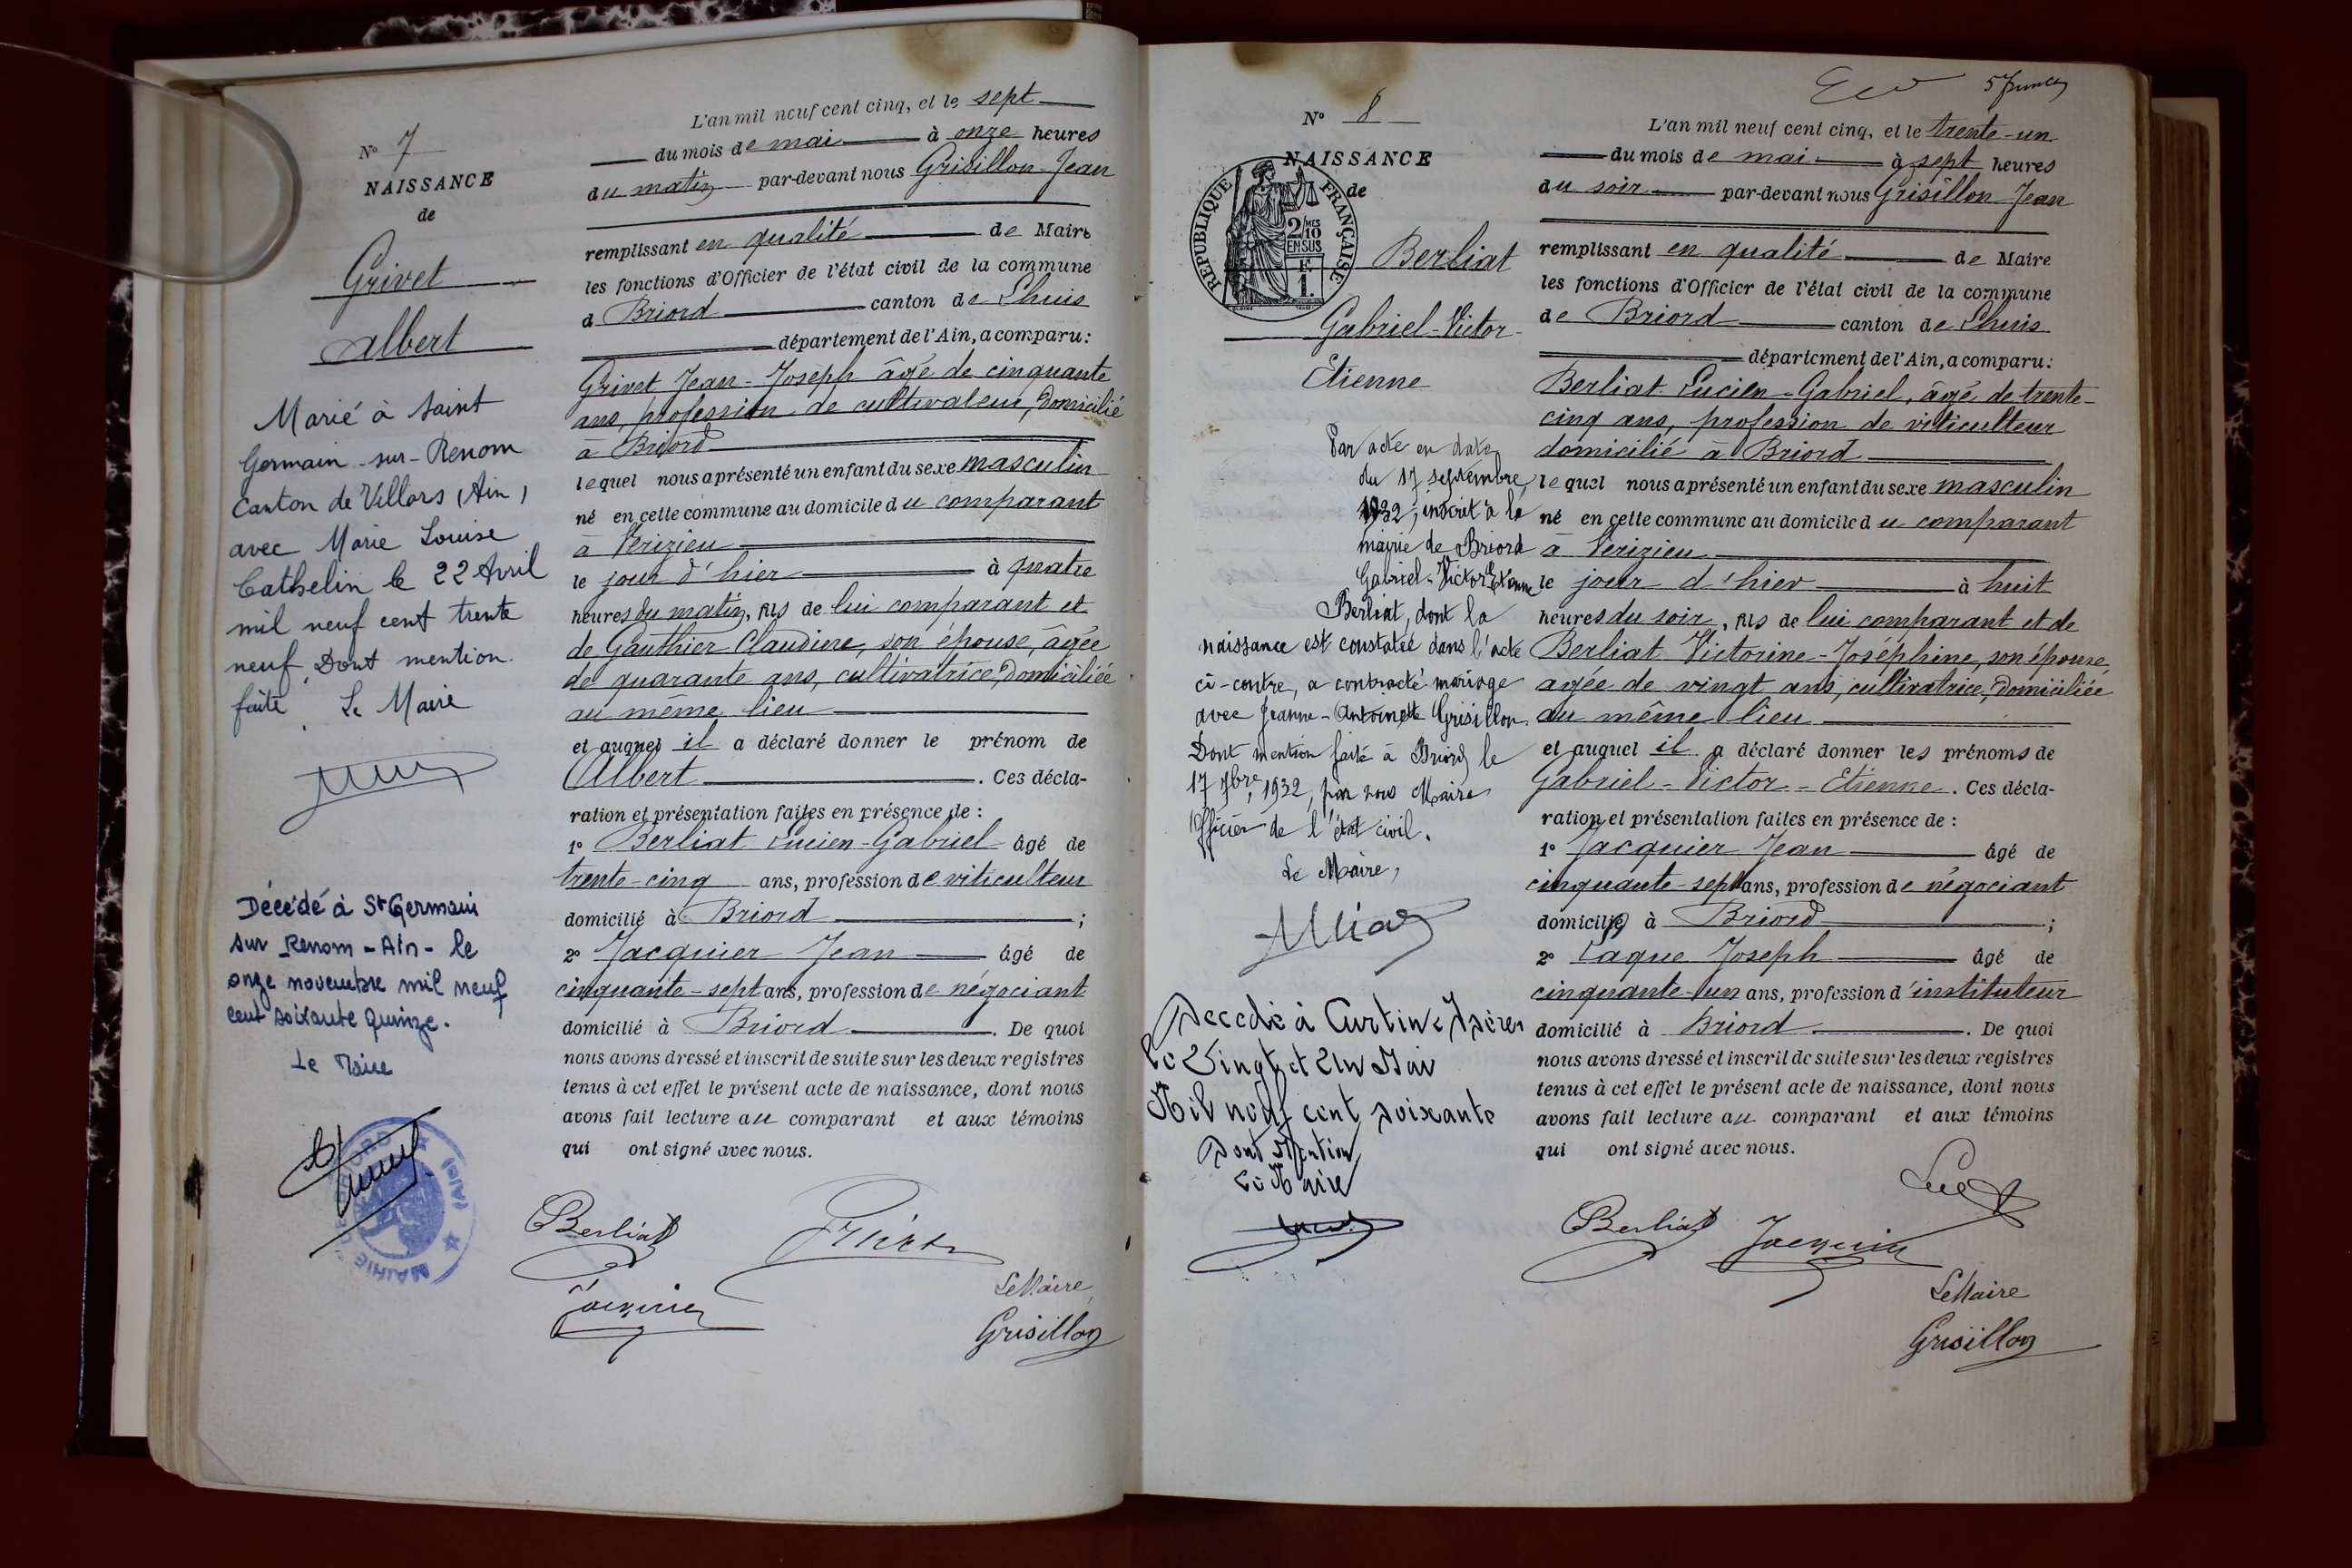 N° 7
NAISSANCE
de
Grivet
Albert
Marié à Saint
Germain-sur-Renom
Canton de Villars (Ain)
avec Marie Louise
Cathelin le 22 Avril
mil neuf cent trente
neuf. Dont mention
faite. Le Maire
Décédé à St Germain
sur Renom - Ain - le
onze novembre mil neuf
cent soixante quinze.
Le Maire
MAIRIE (AIN)
L'an mil neuf cent cinq, et le sept
du mois de mai à onze heures
du matin par-devant nous Grisillon Jean
remplissant en qualité de Maire
les fonctions d'Officier de l'état civil de la commune
d Briord canton de Lhuis
département de l'Ain, a comparu:
Grivet Jean-Joseph âgé de cinquante
ans, profession de cultivateur, domicilié
à Briord
lequel nous a présenté un enfant du sexe masculin
né en cette commune au domicile du comparant
à Vérizieu
le jour d'hier à quatre
heures du matin, fils de lui comparant et
de Gauthier Claudine, son épouse, âgée
de quarante ans, cultivatrice, domiciliée
au même lieu
et auquel il a déclaré donner le prénom de
Albert. Ces décla-
ration et présentation faites en présence de :
1° Berliat Lucien-Gabriel âgé de
trente-cinq ans, profession de viticulteur
domicilié à Briord ;
2° Jacquier Jean âgé de
cinquante-sept ans, profession de négociant
domicilié à Briord. De quoi
nous avons dressé et inscrit de suite sur les deux registres
tenus à cet effet le présent acte de naissance, dont nous
avons fait lecture au comparant et aux témoins
qui ont signé avec nous.
Berliat
Jacquier
Le Maire,
Grisillon
N° 8
NAISSANCE
de
REPUBLIQUE FRANÇAISE
2/10 MES
EN SUS
F.
1.
Berliat
Gabriel-Victor-
Etienne
Par acte en date
du 17 septembre
1932, inscrit à la
mairie de Briord
Gabriel-Victor Etienne
Berliat, dont la
naissance est constatée dans l'acte
ci-contre, a contracté mariage
avec Jeanne-Antoinette Grisillon.
Dont mention faite à Briord le
17 7bre, 1932, par nous Maire
Officier de l'état civil.
Le Maire,
Décédé à Curtin Isère
le Vingt et Un Mai
Mil neuf cent soixante
Dont Mention
Le Maire
L'an mil neuf cent cinq, et le trente-un
du mois de mai à sept heures
du soir par-devant nous Grisillon Jean
remplissant en qualité de Maire
les fonctions d'Officier de l'état civil de la commune
de Briord canton de Lhuis
département de l'Ain, a comparu:
Berliat Lucien-Gabriel, âgé de trente-
cinq ans, profession de viticulteur
domicilié à Briord
lequel nous a présenté un enfant du sexe masculin
né en cette commune au domicile du comparant
à Vérizieu
le jour d'hier à huit
heures du soir, fils de lui comparant et de
Berliat Victorine-Joséphine, son épouse,
agée de vingt ans, cultivatrice, domiciliée
au même lieu
et auquel il a déclaré donner les prénoms de
Gabriel-Victor-Etienne. Ces décla-
ration et présentation faites en présence de :
1° Jacquier Jean âgé de
cinquante-sept ans, profession de négociant
domicilié à Briord ;
2° Joseph âgé de
cinquante-un ans, profession d'instituteur
domicilié à Briord. De quoi
nous avons dressé et inscrit de suite sur les deux registres
tenus à cet effet le présent acte de naissance, dont nous
avons fait lecture au comparant et aux témoins
qui ont signé avec nous.
Berliat Jacquier
Le Maire
Grisillon